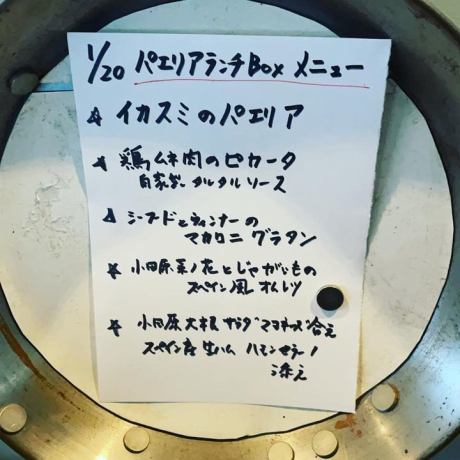 1/20 パエリアランチBox メニュー
☆ イカスミのパエリア
☆ 鶏ムネ肉のピカータ
自家製 タルタルソース
☆ シーフードとウィンナーの
マカロニ グラタン
☆ 小田原菜ノ花とじゃがいもの
スペイン風 オムレツ
☆ 小田原大根 サラダ マヨネーズ 合え
スペイン産 生ハム ハモンセラーノ
添え